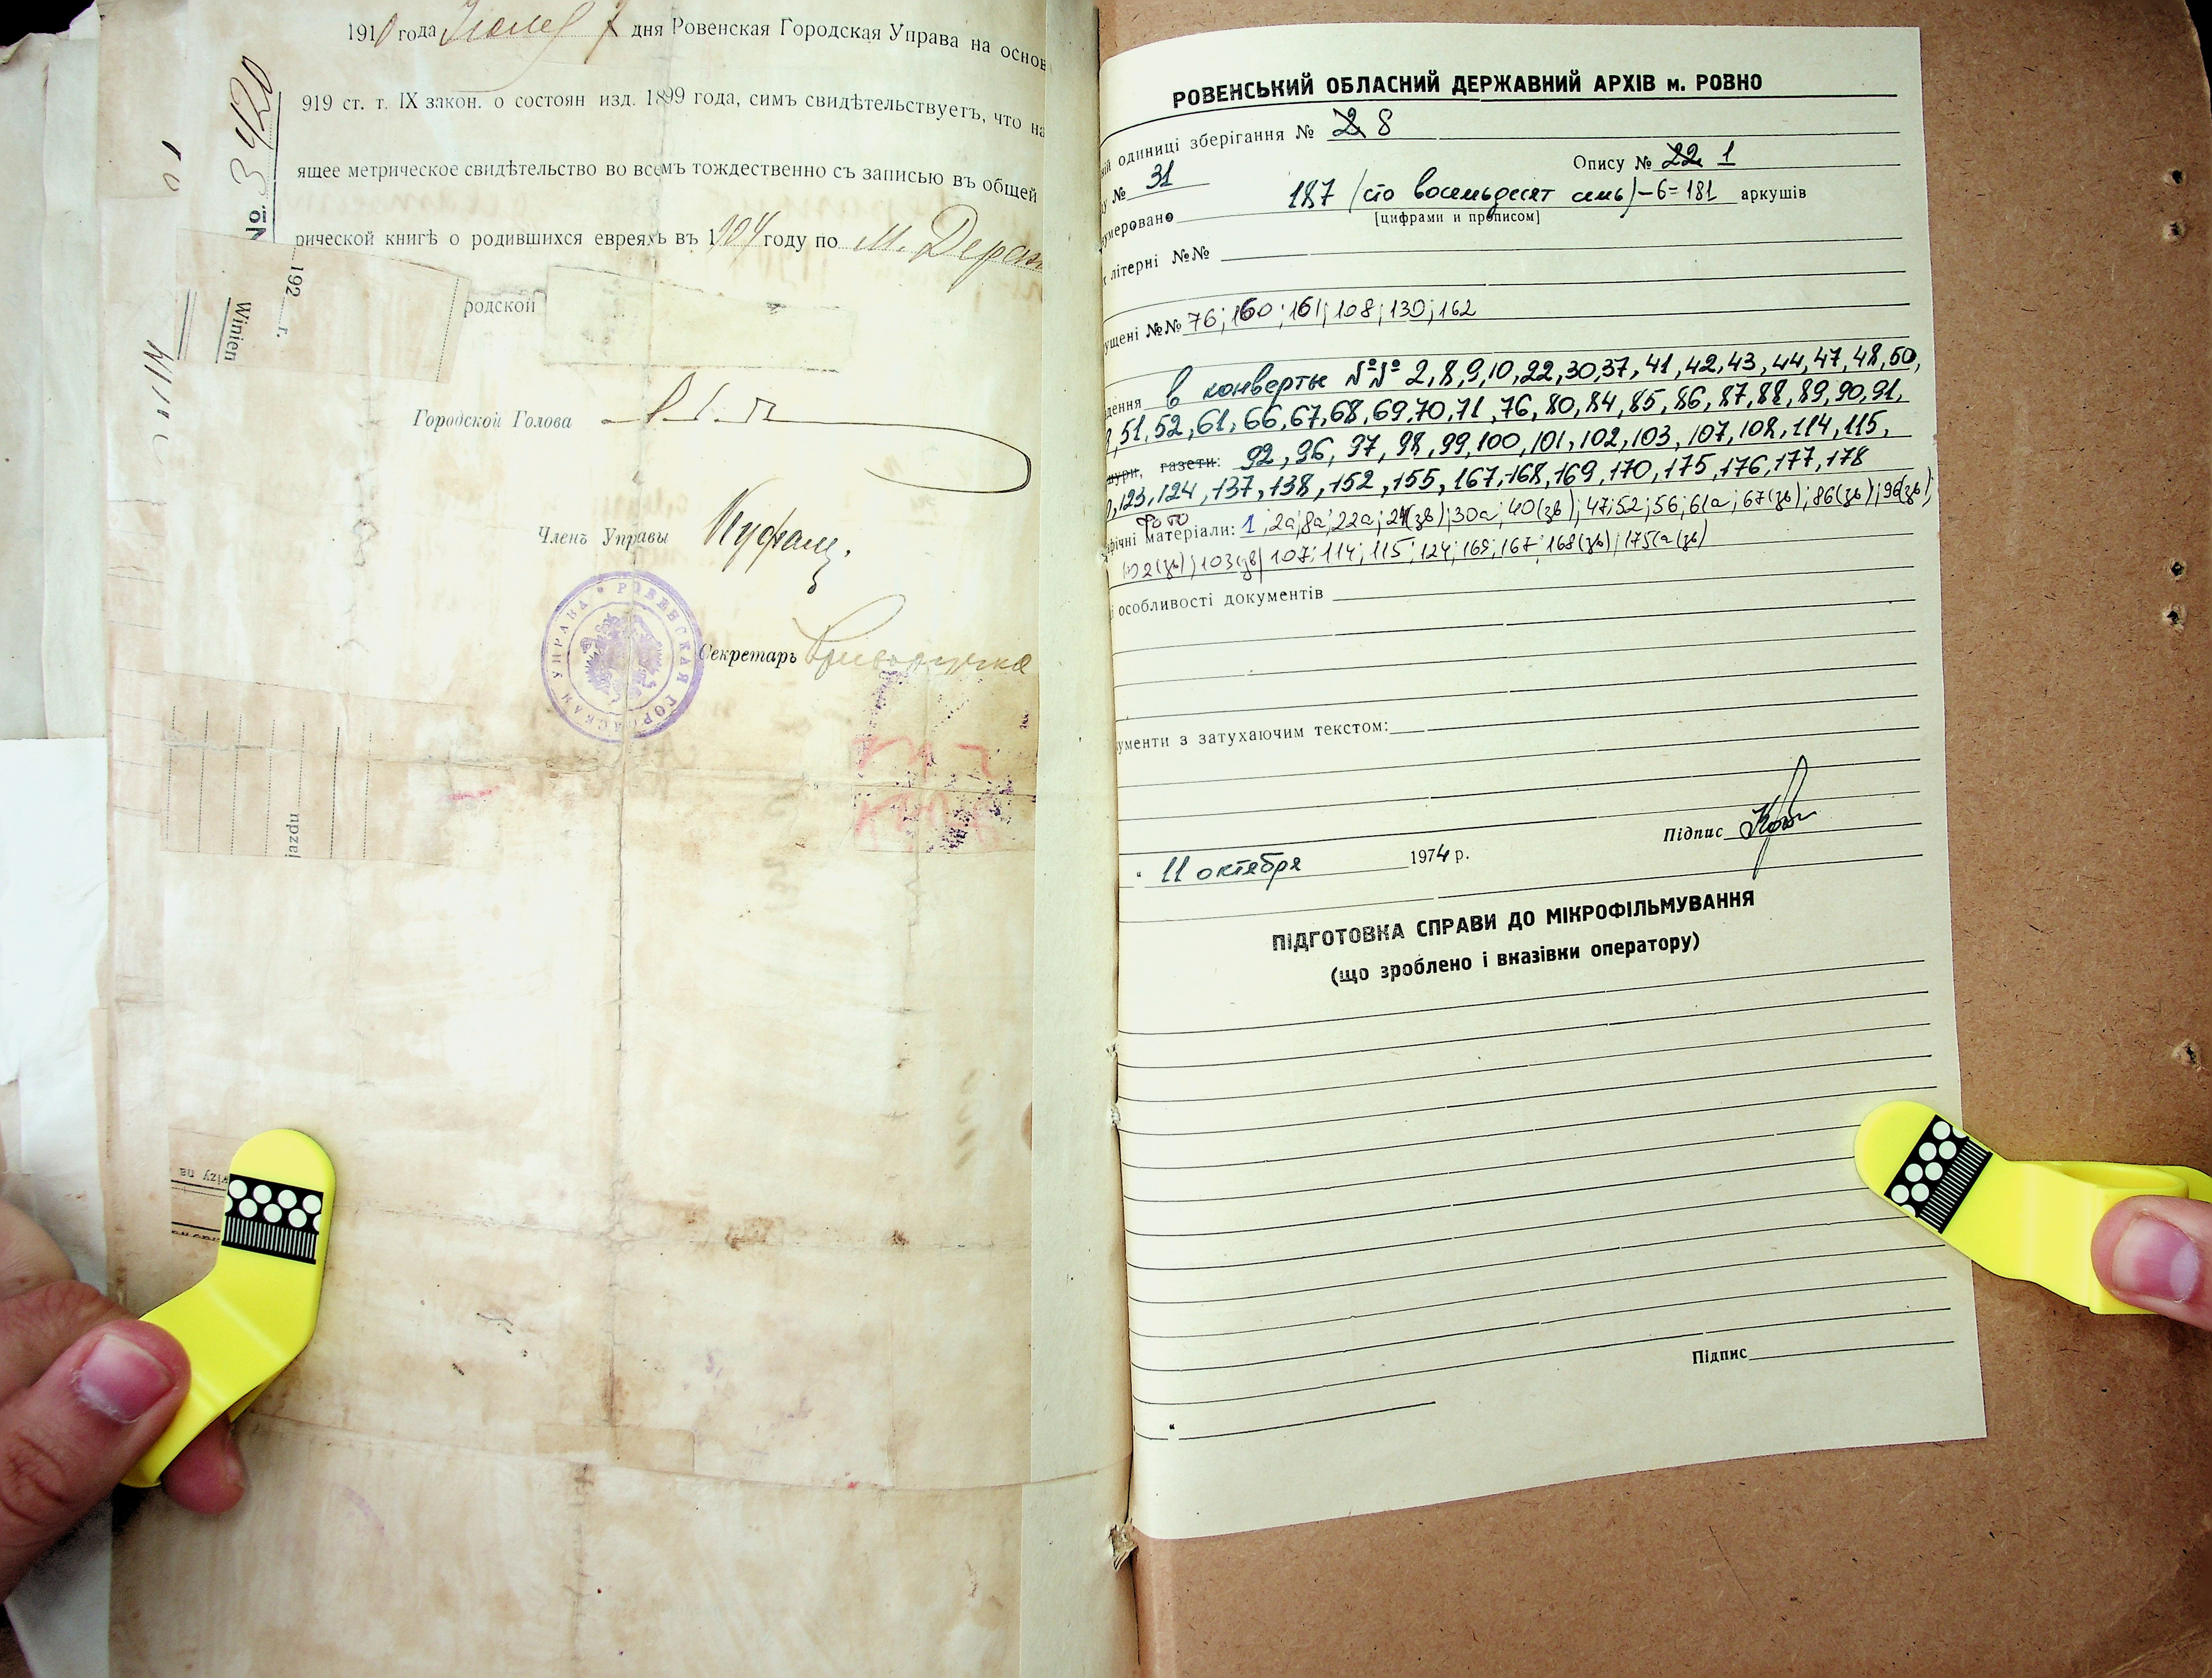 191 года Июля 7 дня Ровенская Городская Управа на основ
919 ст. т. IX закон. о состоян изд. 1899 года, симъ свидѣтельствуетъ, что на
ящее метрическое свидѣтельство во всемъ тождественно съ записью въ общей
рической книгѣ о родившихся евреяхъ въ 1904 году по м. Дераж
родской
№ 3420
192 г.
Winien
Городской Голова
Членъ Управы
РОВЕНСКАЯ ГОРОДСКАЯ УПРАВА
Секретарь
przej
wizy na
РОВЕНСЬКИЙ ОБЛАСНИЙ ДЕРЖАВНИЙ АРХІВ м. РОВНО
ій одиниці зберігання № 2 8
Опису № 22 1
у № 31
умеровано 187 (сто восемьдесят семь) – 6 = 181 аркушів
[цифрами и прописом]
літерні №№
ущені №№ 76; 160; 161; 108; 130; 162
дення в конверте №№ 2, 8, 9, 10, 22, 30, 37, 41, 42, 43, 44, 47, 48, 50,
51, 52, 61, 66, 67, 68, 69, 70, 71, 76, 80, 84, 85, 86, 87, 88, 89, 90, 91,
шури, газети: 92, 96, 97, 98, 99, 100, 101, 102, 103, 107, 108, 114, 115,
123, 124, 137, 138, 152, 155, 167, 168, 169, 170, 175, 176, 177, 178
фото
фічні матеріали: 1; 2а; 8а; 22а; 24(зв); 30а; 40(зв); 47; 52; 56; 61а; 67(зв); 86(зв); 96(зв);
102(зв); 103(зв) 107; 114; 115; 124; 165; 167; 168(зв); 175(а(зв)
і особливості документів
ументи з затухаючим текстом:
Підпис
“ 11 октября 1974 р.
ПІДГОТОВКА СПРАВИ ДО МІКРОФІЛЬМУВАННЯ
(що зроблено і вказівки оператору)
Підпис
“